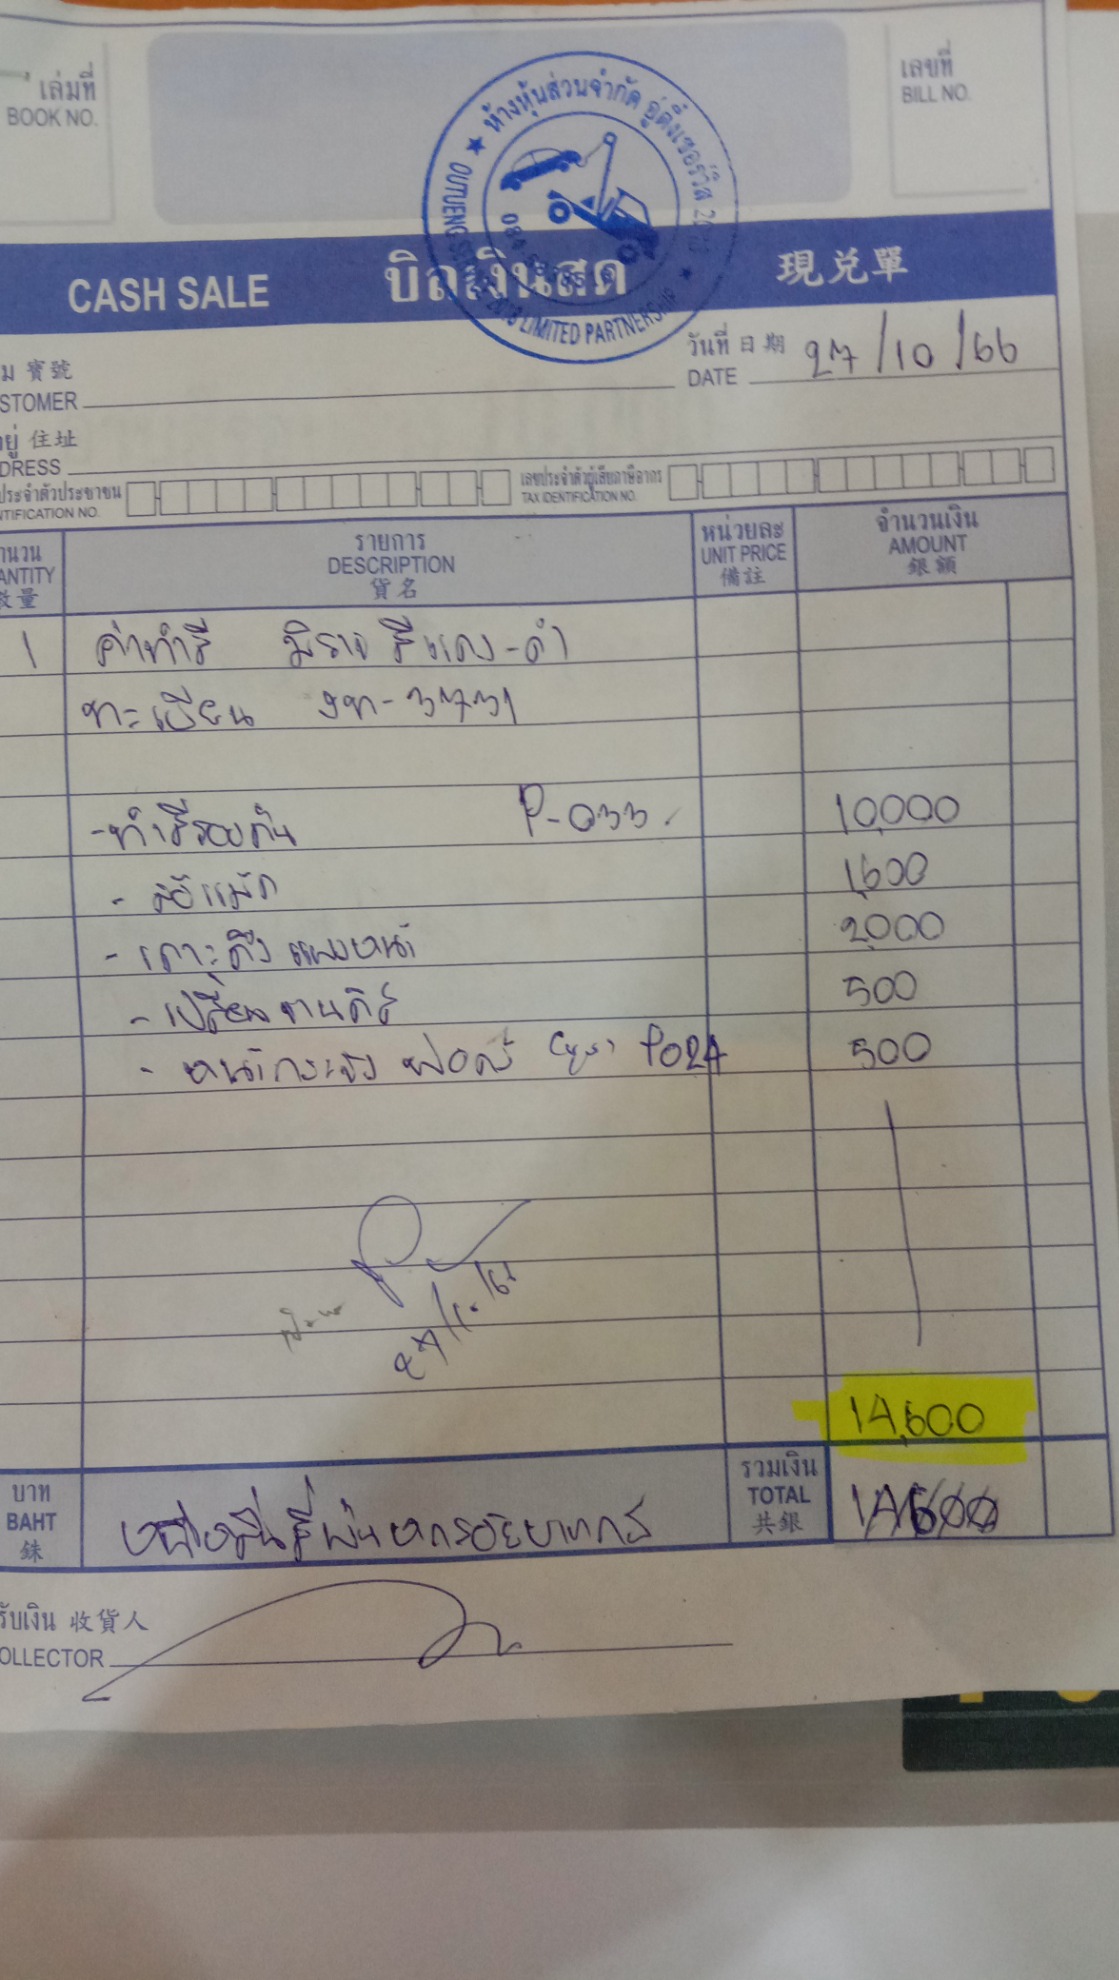 เล่มที่
BOOK NO.
เลขที่
BILL NO.
ห้างหุ้นส่วนจำกัด อู่ตึ๋งเซอร์วิส
OUTUENG LIMITED PARTNERSHIP
CASH SALE บิลเงินสด 現兌單
ม 寶號
STOMER
วันที่ 日期 27/10/66
DATE
ยู่ 住址
DRESS
ประจำตัวประชาชน
NTIFICATION NO.
เลขประจำตัวผู้เสียภาษีอากร
TAX IDENTIFICATION NO.
านวน
ANTITY
數量
รายการ
DESCRIPTION
貨名
หน่วยละ
UNIT PRICE
備註
จำนวนเงิน
AMOUNT
銀額
1 ค่าทำสี มิราจ สีแดง-ดำ
ทะเบียน 3731
-ทำสีรอบคัน P-033 10,000
- 1,600
- เคาะดึง แผงหน้า 2,000
- เปลี่ยน 500
- หน้ากระจัง ฟอร์ด P024 500
14,600
บาท
BAHT
銖
หนึ่งหมื่นสี่พันหกร้อยบาทถ้วน
รวมเงิน
TOTAL
共銀
14,600
รับเงิน 收貨人
OLLECTOR